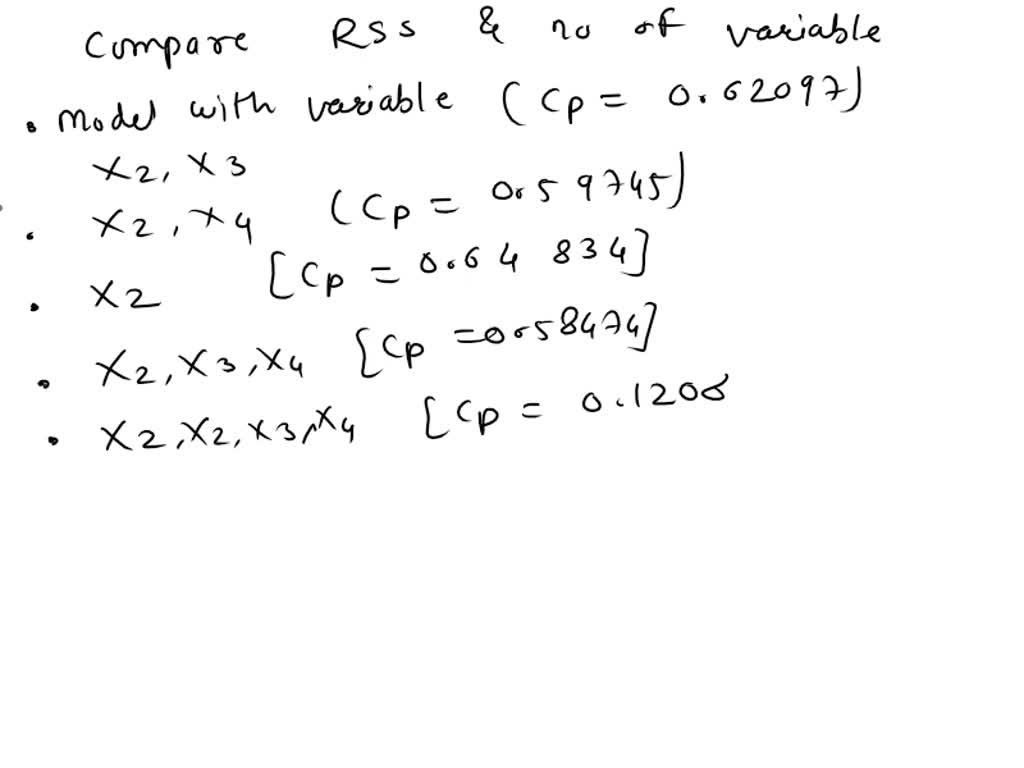 Compare RSS & no of variable
• Model with variable (Cp = 0.62097)
X2, X3
• X2, X4 (Cp = 0.59745)
• X2 [Cp = 0.64 834]
• X2, X3, X4 [Cp = 0.58474]
• X2, X2, X3, X4 [Cp = 0.1208